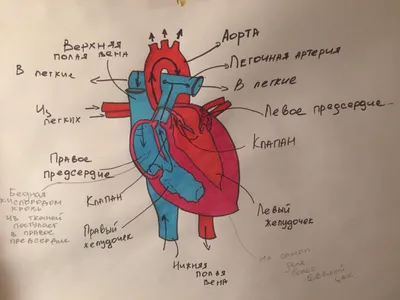 Верхняя
полая вена
Аорта
Легочная артерия
В легкие
В легкие
Из
легких
Левое предсердие
Клапан
Правое
предсердие
Бедная
кислородом
кровь
из тканей
поступает
в правое
предсердие
Клапан
Правый
желудочек
Левый
желудочек
Нижняя
полая
вена